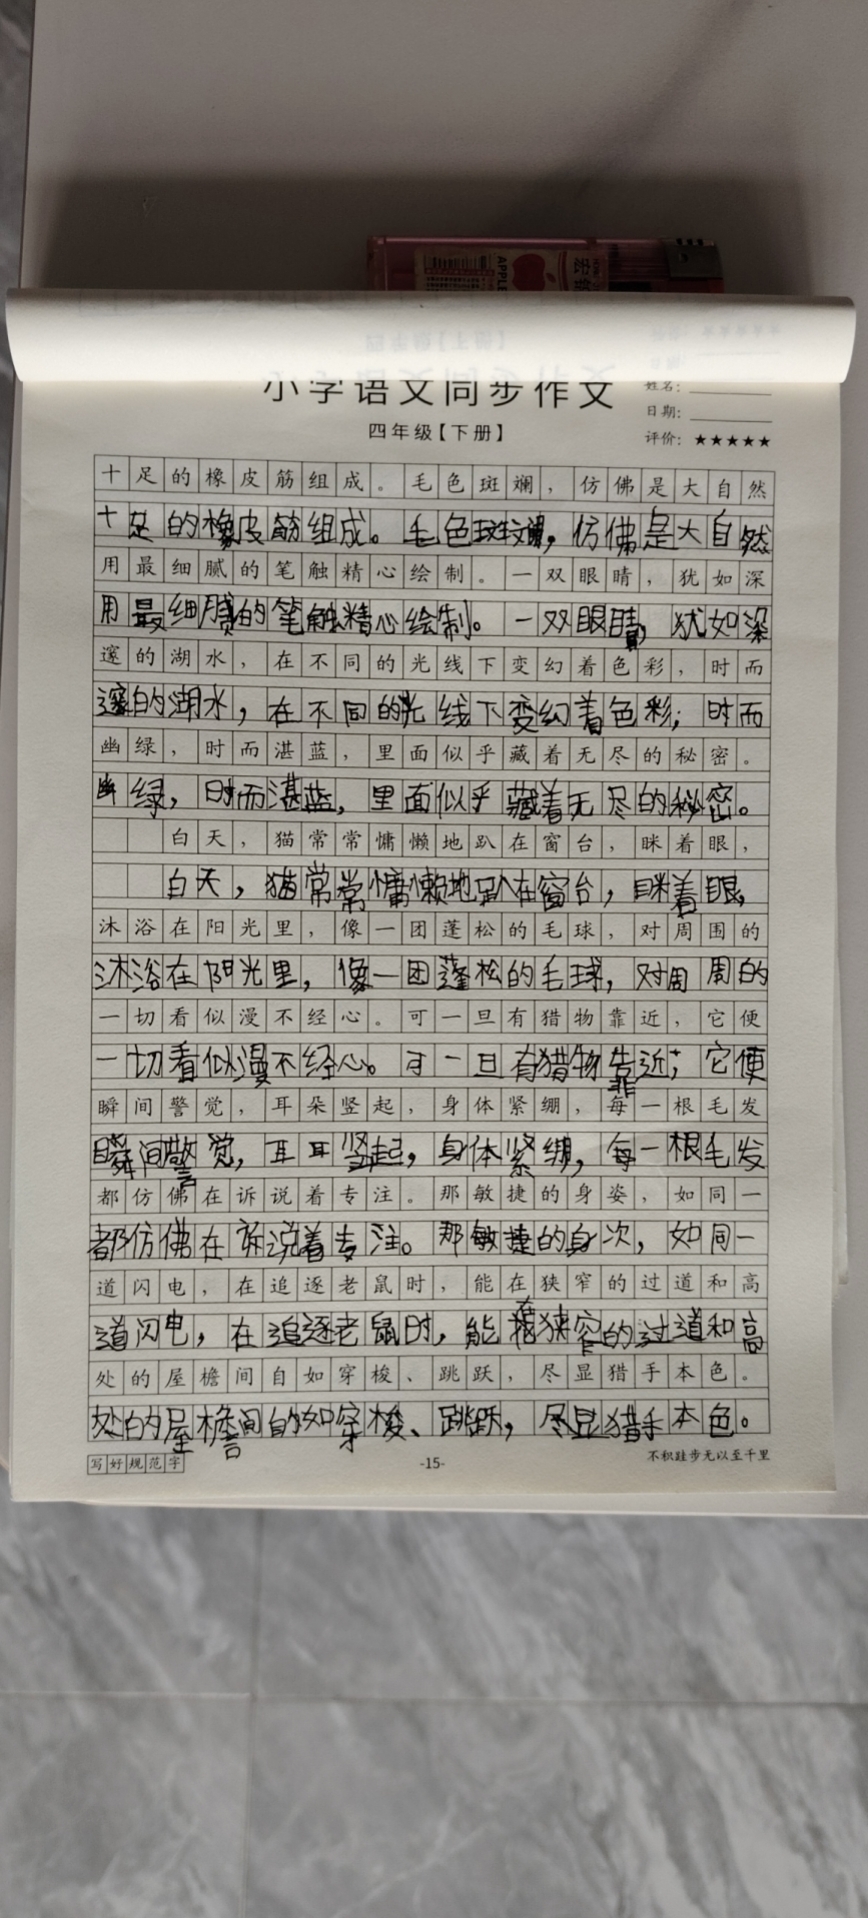 APPLE
小学语文同步作文
四年级【下册】
姓名：
日期：
评价：★★★★★
十足的橡皮筋组成。毛色斑斓，仿佛是大自然
十足的橡皮筋组成。毛色斑斓，仿佛是大自然
用最细腻的笔触精心绘制。一双眼睛，犹如深
用最细腻的笔触精心绘制。一双眼睛，犹如深
邃的湖水，在不同的光线下变幻着色彩，时而
邃的湖水，在不同的光线下变幻着色彩；时而
幽绿，时而湛蓝，里面似乎藏着无尽的秘密。
幽绿，时而湛蓝，里面似乎藏着无尽的秘密。
白天，猫常常慵懒地趴在窗台，眯着眼，
白天，猫常常慵懒地趴在窗台，眯着眼，
沐浴在阳光里，像一团蓬松的毛球，对周围的
沐浴在阳光里，像一团蓬松的毛球，对周周的
一切看似漫不经心。可一旦有猎物靠近，它便
一切看似漫不经心。可一旦有猎物靠近；它便
瞬间警觉，耳朵竖起，身体紧绷，每一根毛发
瞬间警觉，耳耳竖起，身体紧绷，每一根毛发
都仿佛在诉说着专注。那敏捷的身姿，如同一
都仿佛在诉说着专注。那敏捷的身次，如同一
道闪电，在追逐老鼠时，能在狭窄的过道和高
道闪电，在追逐老鼠时，能在狭窄的过道和高
处的屋檐间自如穿梭、跳跃，尽显猎手本色。
处的屋檐间自如穿梭、跳跃，尽显猎手本色。
写好规范字
-15-
不积跬步无以至千里